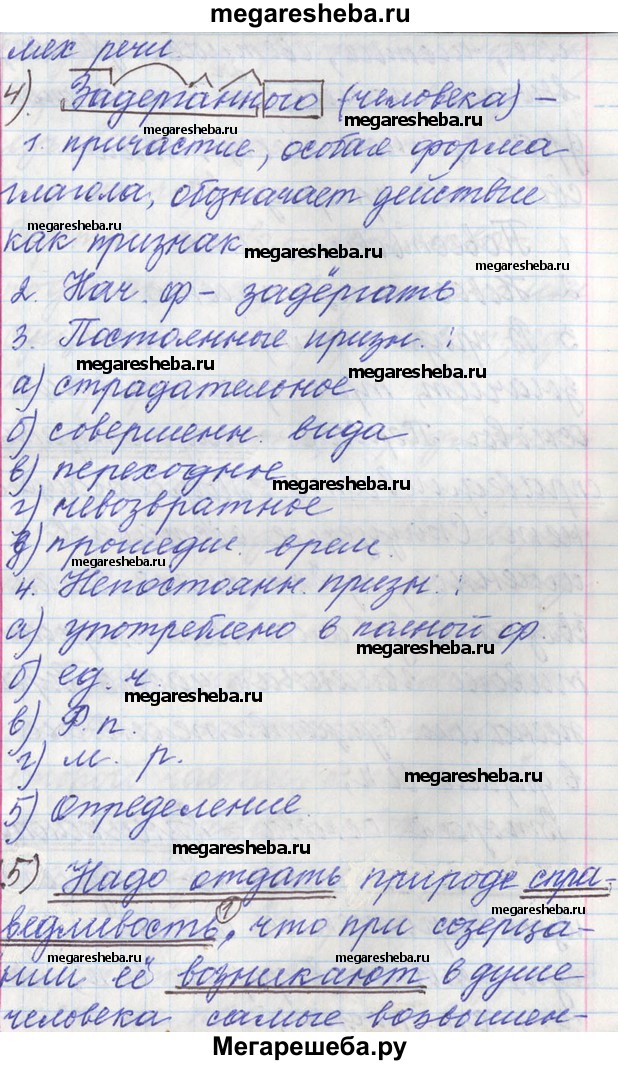 megaresheba.ru
мях речи.
4). Задерганного (человека) –
megaresheba.ru
megaresheba.ru
1. причастие, особая форма
глагола, обозначает действие
megaresheba.ru
как признак
megaresheba.ru
megaresheba.ru
2. Нач. ф – задёргать
3. Постоянные призн. :
megaresheba.ru
megaresheba.ru
а) страдательное
б) совершенн. вида
в) переходное
megaresheba.ru
г) невозвратное
д) прошедш. врем.
megaresheba.ru
4. Непостоянн. призн. :
а) употреблено в полной ф.
megaresheba.ru
б) ед. ч.
megaresheba.ru
в) Р. п.
г) м. р.
megaresheba.ru
5) Определение.
megaresheba.ru
5) Надо отдать природе спра-
megaresheba.ru
ведливость, ① что при созерца-
нии её возникают в душе
человека самые возвышен-
Мегарешеба.ру